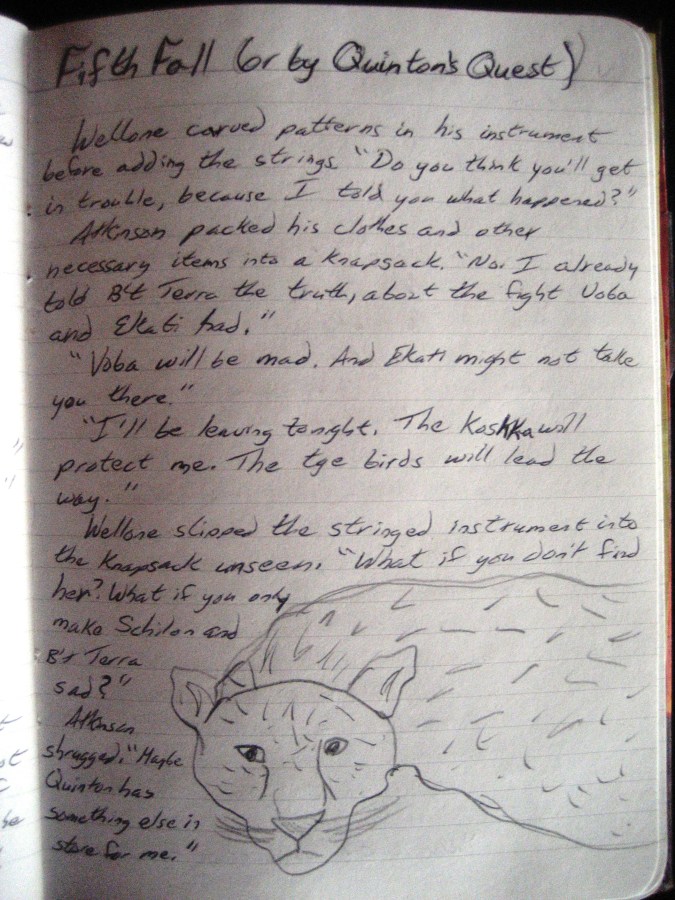 Fifth Fall (or by Quinton's Quest)
Wellone carved patterns in his instrument
before adding the strings. "Do you think you'll get
in trouble, because I told you what happened?"
Atkinson packed his clothes and other
necessary items into a knapsack. "No. I already
told B't Terra the truth, about the fight Voba
and Ekati had."
"Voba will be mad. And Ekati might not take
you there."
"I'll be leaving tonight. The Koshka will
protect me. The tge birds will lead the
way."
Wellone slipped the stringed instrument into
the knapsack unseen. "What if you don't find
her? What if you only
make Schilon and
B't Terra
sad?"
Atkinson
shrugged. "Maybe
Quinton has
something else in
store for me."